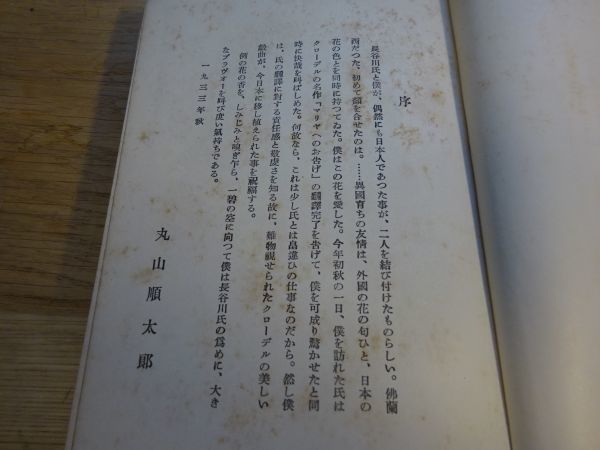 序
長谷川氏と僕が、偶然にも日本人であつた事が、二人を結び付けたものらしい。佛蘭
西だつた、初めて顏を合せたのは。……異國育ちの友情は、外國の花の匂ひと、日本の
花の色とを同時に持つてゐた。僕はこの花を愛した。今年初秋の一日、僕を訪れた氏は
クローデルの名作「マリヤへのお告げ」の飜譯完了を告げて、僕を可成り驚かせたと同
時に快哉を叫ばしめた。何故なら、これは少し氏とは畠違ひの仕事なのだから。然し僕
は、氏の飜譯に對する責任感と敬虔さを知る故に、難物視せられたクローデルの美しい
戯曲が、今日本に移し植えられた事を祝福する。
例の花の香を、しみじみと嗅ぎ乍ら、一碧の空に向つて僕は長谷川氏の爲めに、大き
なブラヴォーを叫び度い氣持ちである。
一九三三年秋
丸山順太郎